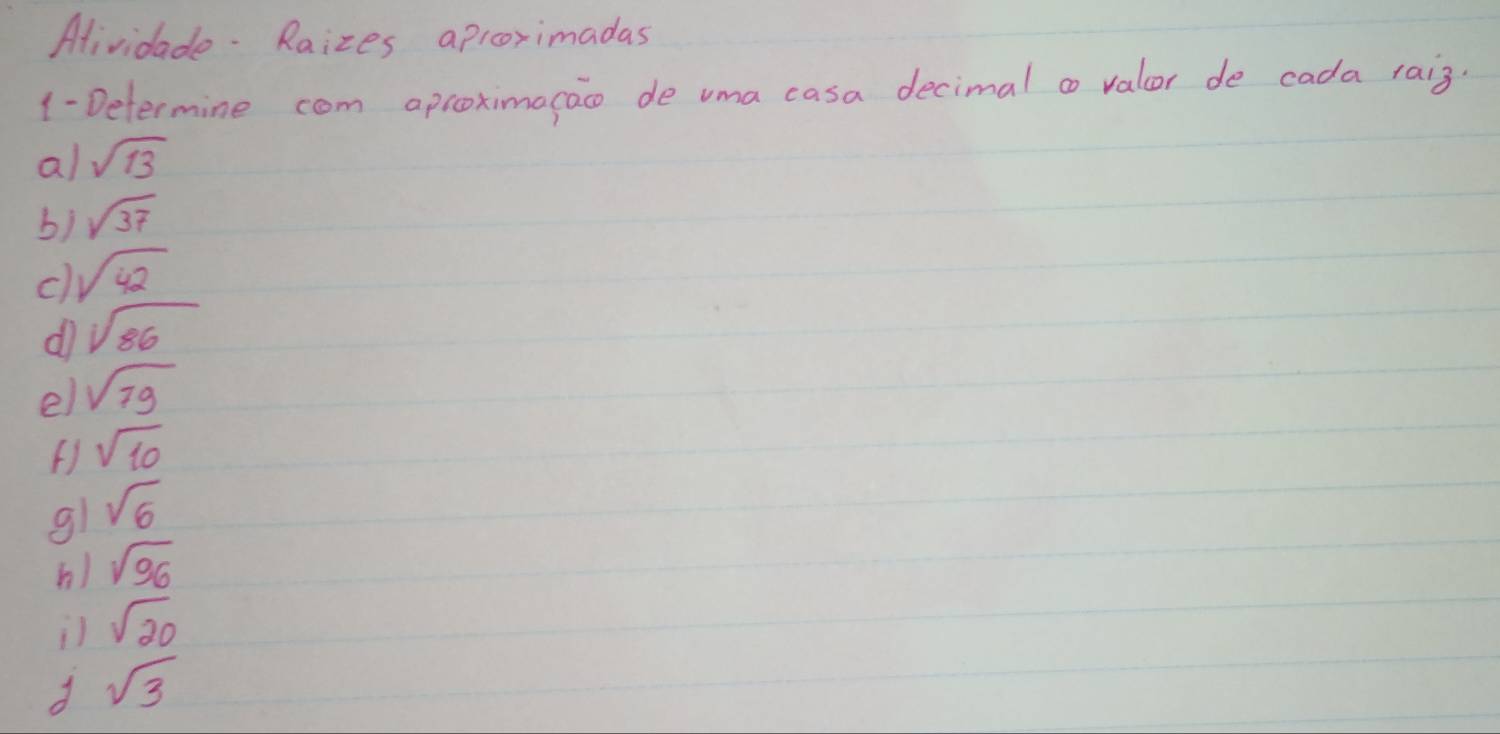 Atividade - Raizes aproximadas
1 - Determine com aproximação de uma casa decimal o valor de cada raiz.
a) √13
b) √37
c) √42
d) √86
e) √79
f) √10
g) √6
h) √96
i) √20
j √3